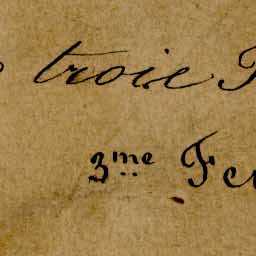 troie
3me Fe